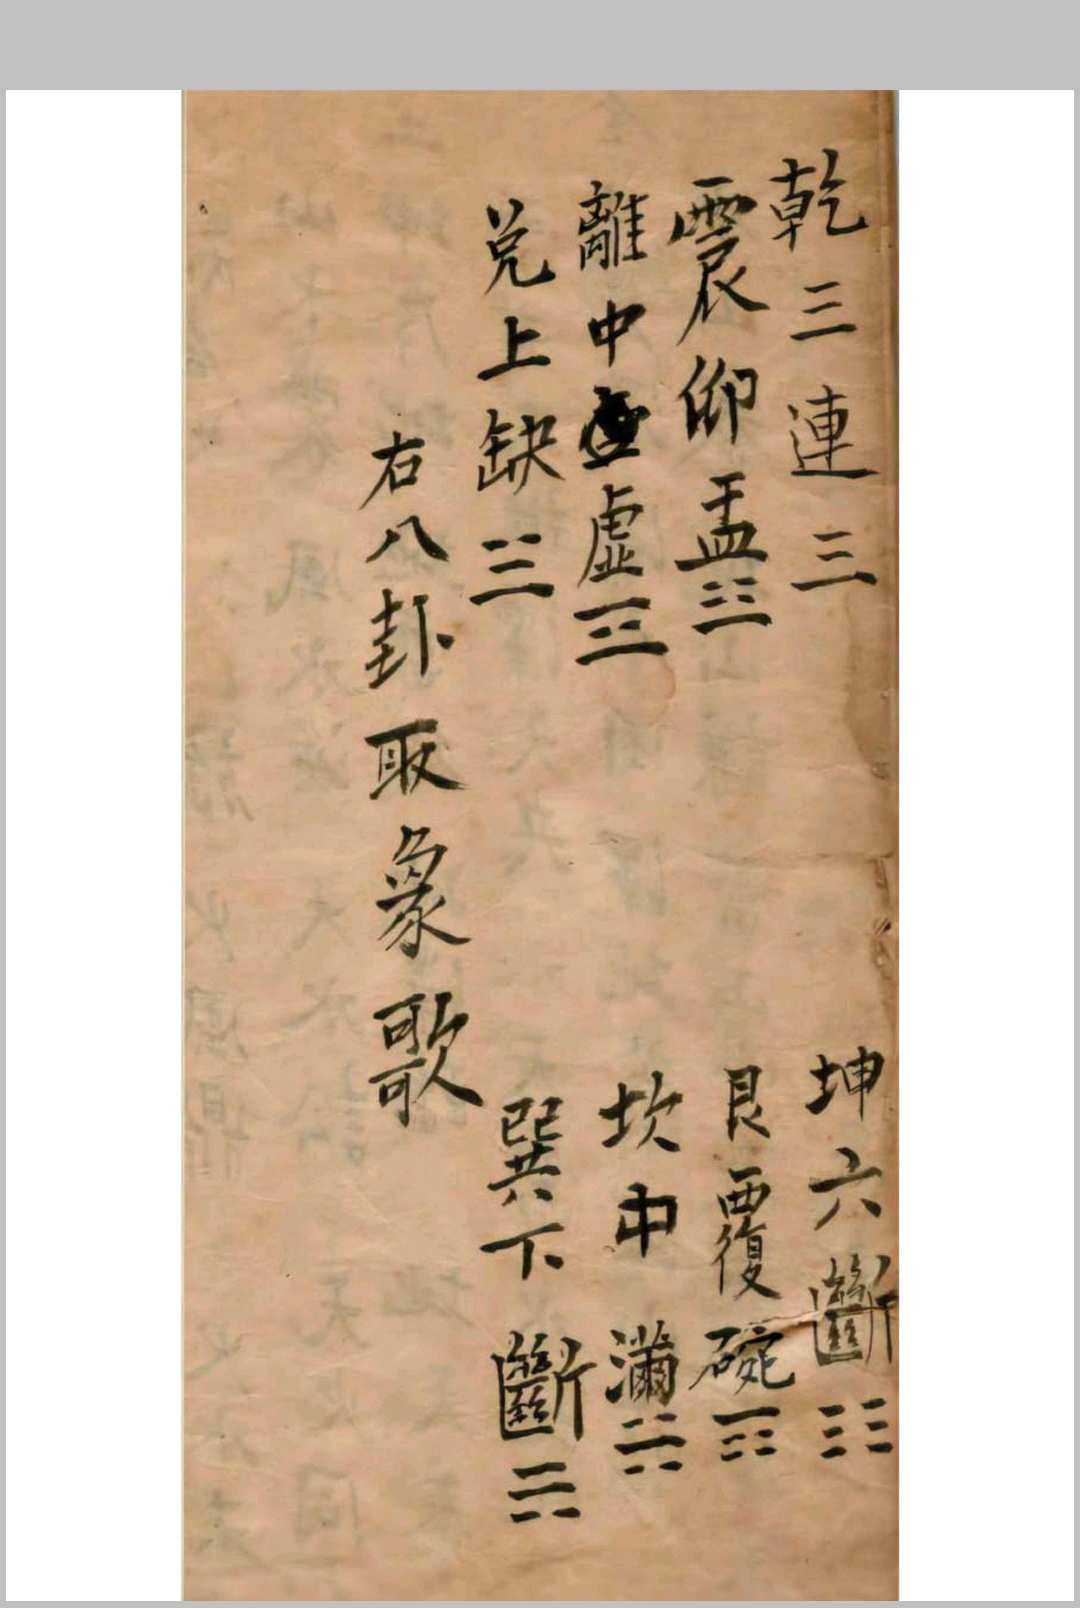 乾三連☰
坤六斷☷
震仰盂☳
艮覆碗☶
離中虛☲
坎中滿☵
兌上缺☱
巽下斷☴
右八卦取象歌